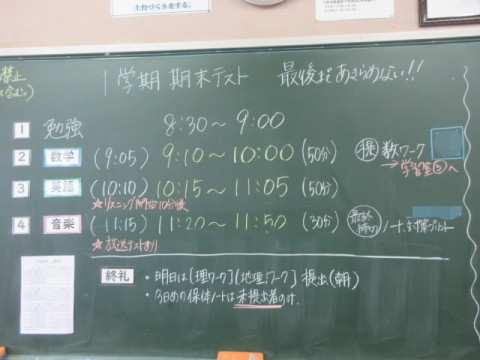 土台づくりをする。
禁止
1学期 期末テスト 最後まであきらめない!!
1 勉強 8:30～9:00
2 数学 (9:05) 9:10～10:00 (50分) 提 数ワーク
→学習室②へ
3 英語 (10:10) 10:15～11:05 (50分)
☆リスニング開始10分後
4 音楽 (11:15) 11:20～11:50 (30分) 最終 ノート、対策プリント
☆放送テストあり
終礼 ・明日は[理ワーク][地理ワーク]提出(朝)
・3日めの保体ノートは未提出者のみ。